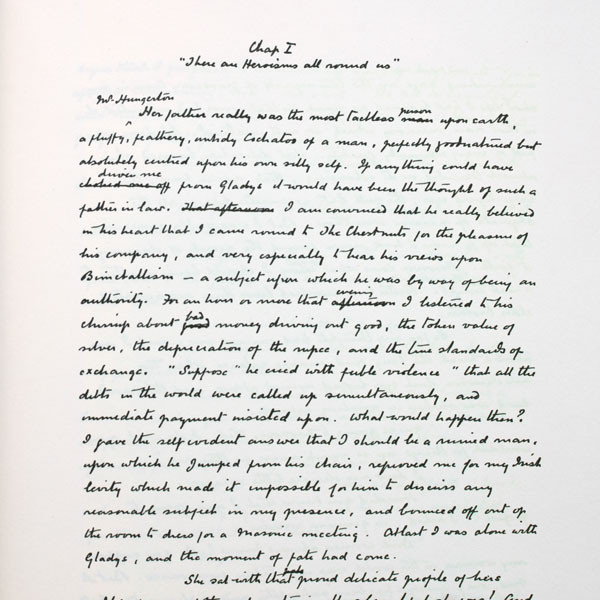 Chap I
"There are Heroisms all round us"
Mr. Hungerton
Her father really was the most tactless man person upon earth,
a fluffy, feathery, untidy Cockatoo of a man, perfectly goodnatured but
absolutely centred upon his own silly self. If anything could have
driven me
choked me off from Gladys it would have been the thought of such a
father in law. That afternoon I am convinced that he really believed
in his heart that I came round to The Chestnuts for the pleasure of
his company, and very especially to hear his views upon
Bimetallism – a subject upon which he was by way of being an
authority. For an hour or more that afternoon evening I listened to his
chirrup about good bad money driving out good, the token value of
silver, the depreciation of the rupee, and the true standards of
exchange. "Suppose" he cried with feeble violence "that all the
debts in the world were called up simultaneously, and
immediate payment insisted upon. What would happen then?
I gave the self evident answer that I should be a ruined man,
upon which he jumped from his chair, reproved me for my Irish
levity which made it impossible for him to discuss any
reasonable subject in my presence, and bounced off out of
the room to dress for a Masonic meeting. At last I was alone with
Gladys, and the moment of fate had come.
She sat with that proud delicate profile of hers